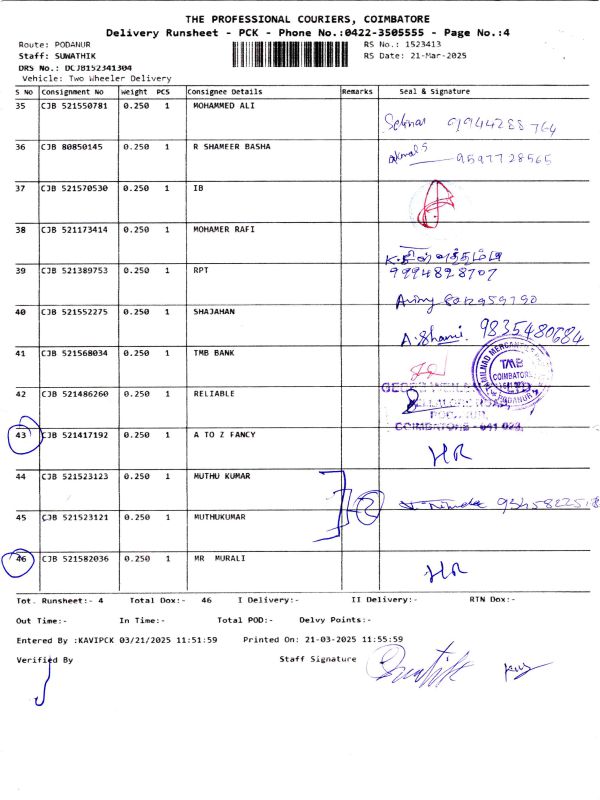 THE PROFESSIONAL COURIERS, COIMBATORE
Delivery Runsheet - PCK - Phone No.:0422-3505555 - Page No.:4
Route: PODANUR RS No.: 1523413
Staff: SUWATHIK RS Date: 21-Mar-2025
DRS No.: DCJB152341304
Vehicle: Two Wheeler Delivery
S NO Consignment No Weight PCS Consignee Details Remarks Seal & Signature
35 CJB 521550781 0.250 1 MOHAMMED ALI
9194428 8764
36 CJB 80850145 0.250 1 R SHAMEER BASHA
9597728565
37 CJB 521570530 0.250 1 IB
38 CJB 521173414 0.250 1 MOHAMER RAFI
39 CJB 521389753 0.250 1 RPT
9994828707
40 CJB 521552275 0.250 1 SHAJAHAN
8012959790
A. Shami. 9835480684
41 CJB 521568034 0.250 1 TMB BANK
TAMILNAD MERCANTILE
TMB
COIMBATORE
PODANUR
42 CJB 521486260 0.250 1 RELIABLE
COIMBATORE - 641 023.
43 CJB 521417192 0.250 1 A TO Z FANCY
HR
44 CJB 521523123 0.250 1 MUTHU KUMAR
2
45 CJB 521523121 0.250 1 MUTHUKUMAR
46 CJB 521582036 0.250 1 MR MURALI
HR
Tot. Runsheet:- 4 Total Dox:- 46 I Delivery:- II Delivery:- RTN Dox:-
Out Time:- In Time:- Total POD:- Delvy Points:-
Entered By :KAVIPCK 03/21/2025 11:51:59 Printed On: 21-03-2025 11:55:59
Verified By Staff Signature